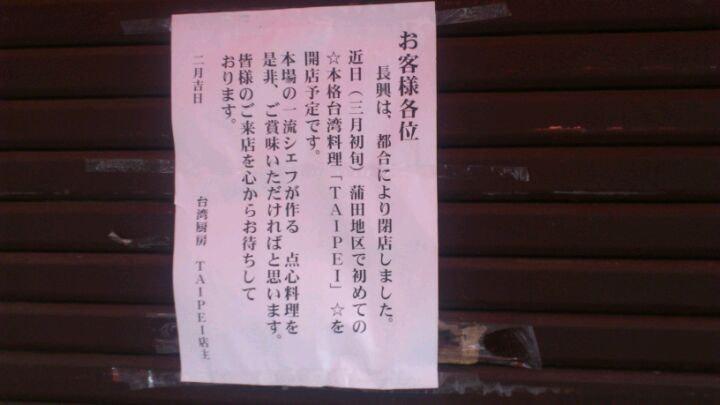 お客様各位
長興は、都合により閉店しました。
近日（三月初旬）蒲田地区で初めての
☆本格台湾料理「ＴＡＩＰＥＩ」☆を
開店予定です。
本場の一流シェフが作る　点心料理を
是非、ご賞味いただければと思います。
皆様のご来店を心からお待ちして
おります。
二月吉日
台湾厨房　ＴＡＩＰＥＩ店主